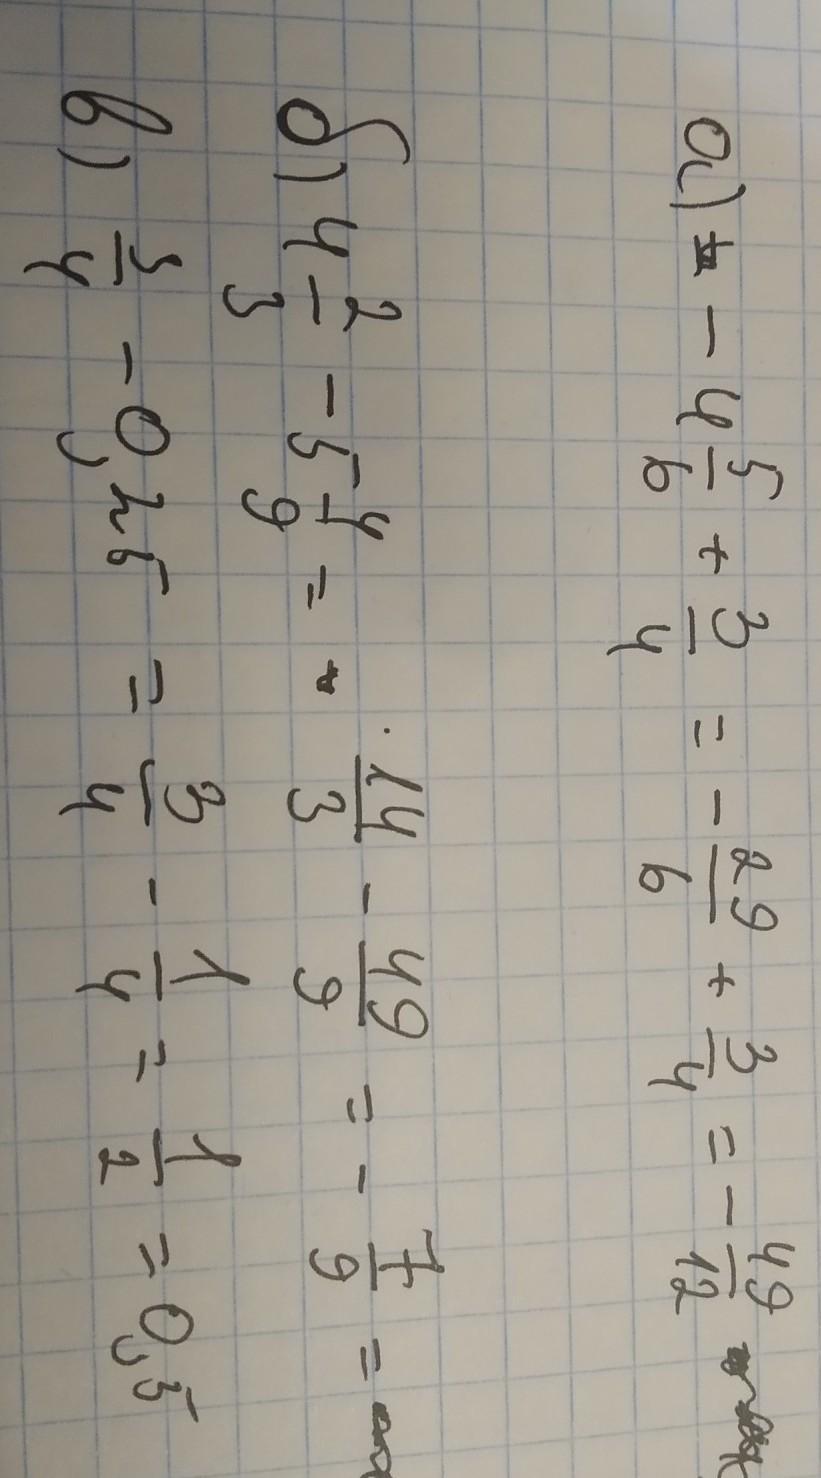 а) - 4 5/6 + 3/4 = - 29/6 + 3/4 = - 49/12
б) 4 2/3 - 5 4/9 = 14/3 - 49/9 = - 7/9 =
в) 3/4 - 0,25 = 3/4 - 1/4 = 1/2 = 0,5